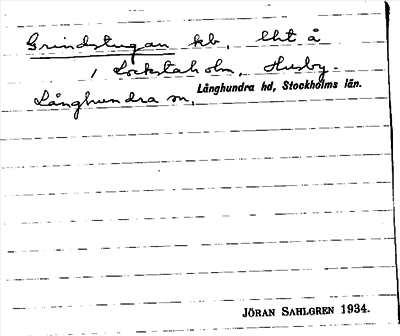 Grindstugan kb, lht å
Lockstaholm, Husby-
Långhundra sn,
Långhundra hd, Stockholms län.
JÖRAN SAHLGREN 1934.